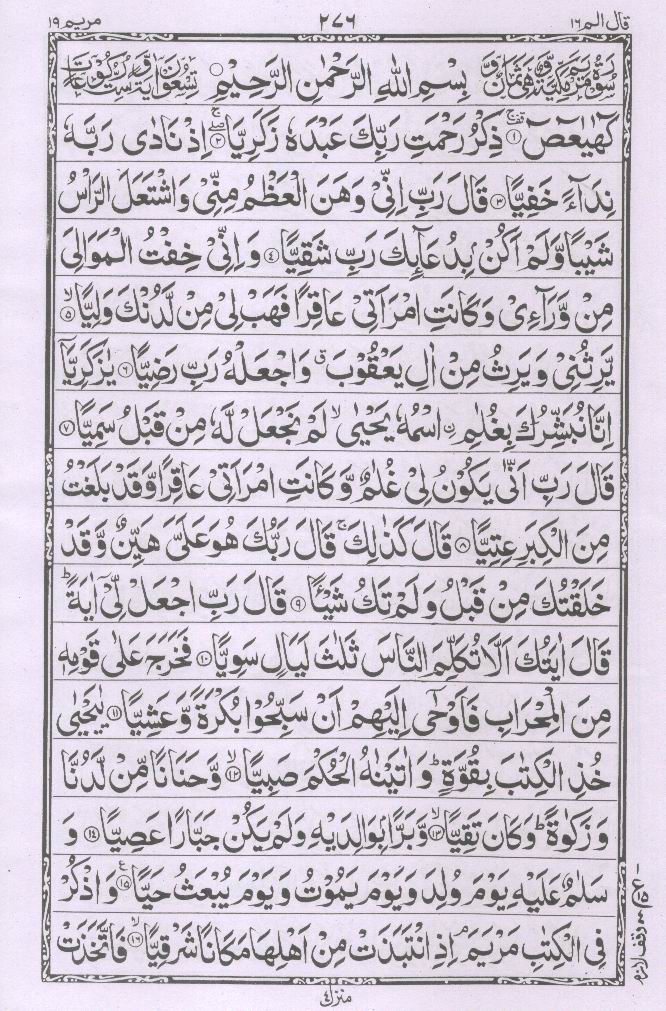 قال الم ١٦ ٢٧٦ مريم ١٩
سورة مريم مكية وهي ثمان و بِسْمِ اللهِ الرَّحْمٰنِ الرَّحِيْمِ تسعون اية وست ركوعات
كٓهٰيٰعٓصٓ ۝١ ذِكْرُ رَحْمَتِ رَبِّكَ عَبْدَهٗ زَكَرِيَّا ۝٢ اِذْ نَادٰى رَبَّهٗ
نِدَآءً خَفِيًّا ۝٣ قَالَ رَبِّ اِنِّيْ وَهَنَ الْعَظْمُ مِنِّيْ وَاشْتَعَلَ الرَّاْسُ
شَيْبًا وَّلَمْ اَكُنْۢ بِدُعَآئِكَ رَبِّ شَقِيًّا ۝٤ وَاِنِّيْ خِفْتُ الْمَوَالِيَ
مِنْ وَّرَآءِيْ وَكَانَتِ امْرَاَتِيْ عَاقِرًا فَهَبْ لِيْ مِنْ لَّدُنْكَ وَلِيًّا ۝٥
يَّرِثُنِيْ وَيَرِثُ مِنْ اٰلِ يَعْقُوْبَ ق وَاجْعَلْهُ رَبِّ رَضِيًّا ۝٦ يٰزَكَرِيَّآ
اِنَّا نُبَشِّرُكَ بِغُلٰمِ ِۨاسْمُهٗ يَحْيٰى لَمْ نَجْعَلْ لَّهٗ مِنْ قَبْلُ سَمِيًّا ۝٧
قَالَ رَبِّ اَنّٰى يَكُوْنُ لِيْ غُلٰمٌ وَّكَانَتِ امْرَاَتِيْ عَاقِرًا وَّقَدْ بَلَغْتُ
مِنَ الْكِبَرِ عِتِيًّا ۝٨ قَالَ كَذٰلِكَ ج قَالَ رَبُّكَ هُوَ عَلَيَّ هَيِّنٌ وَّقَدْ
خَلَقْتُكَ مِنْ قَبْلُ وَلَمْ تَكُ شَيْـًٔا ۝٩ قَالَ رَبِّ اجْعَلْ لِّيْٓ اٰيَةً ط
قَالَ اٰيَتُكَ اَلَّا تُكَلِّمَ النَّاسَ ثَلٰثَ لَيَالٍ سَوِيًّا ۝١٠ فَخَرَجَ عَلٰى قَوْمِهٖ
مِنَ الْمِحْرَابِ فَاَوْحٰٓى اِلَيْهِمْ اَنْ سَبِّحُوْا بُكْرَةً وَّعَشِيًّا ۝١١ يٰيَحْيٰى
خُذِ الْكِتٰبَ بِقُوَّةٍ ط وَاٰتَيْنٰهُ الْحُكْمَ صَبِيًّا ۝١٢ وَّحَنَانًا مِّنْ لَّدُنَّا
وَزَكٰوةً ط وَكَانَ تَقِيًّا ۝١٣ وَّبَرًّۢا بِوَالِدَيْهِ وَلَمْ يَكُنْ جَبَّارًا عَصِيًّا ۝١٤ وَ
سَلٰمٌ عَلَيْهِ يَوْمَ وُلِدَ وَيَوْمَ يَمُوْتُ وَيَوْمَ يُبْعَثُ حَيًّا ۝١٥ وَاذْكُرْ
فِي الْكِتٰبِ مَرْيَمَ م اِذِ انْتَبَذَتْ مِنْ اَهْلِهَا مَكَانًا شَرْقِيًّا ۝١٦ فَاتَّخَذَتْ
وقف لازم
منزل ٤